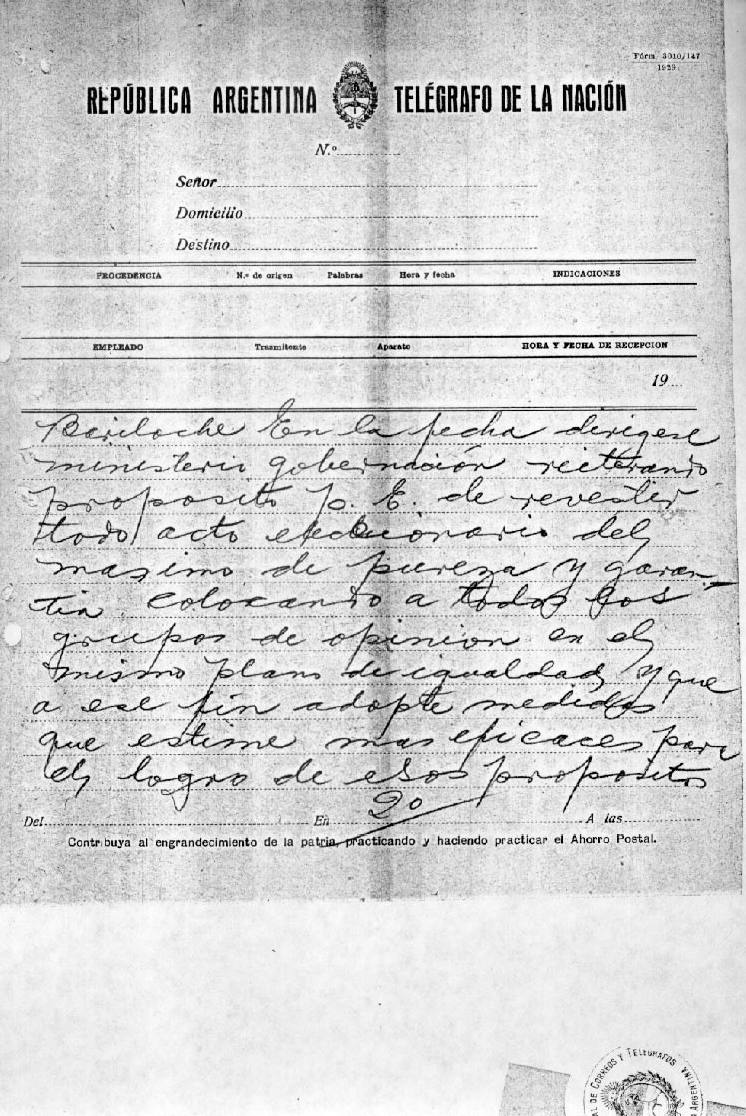 Fórm. 3010/147
1929
REPÚBLICA ARGENTINA TELÉGRAFO DE LA NACIÓN
N.º
Señor
Domicilio
Destino
PROCEDENCIA N.º de origen Palabras Hora y fecha INDICACIONES
EMPLEADO Trasmitente Aparato HORA Y FECHA DE RECEPCION
19
Bariloche En la fecha dirigese
ministerio gobernación reiterando
proposito p. E. de revestir
todo acto eleccionario del
maximo de pureza y garan-
tia colocando a todos los
grupos de opinion en el
mismo plano de igualdad y que
a ese fin adopte medidas
que estime mas eficaces para
el logro de esos propositos
20
Del En A las
Contribuya al engrandecimiento de la patria, practicando y haciendo practicar el Ahorro Postal.
DE CORREOS Y TELEGRAFOS